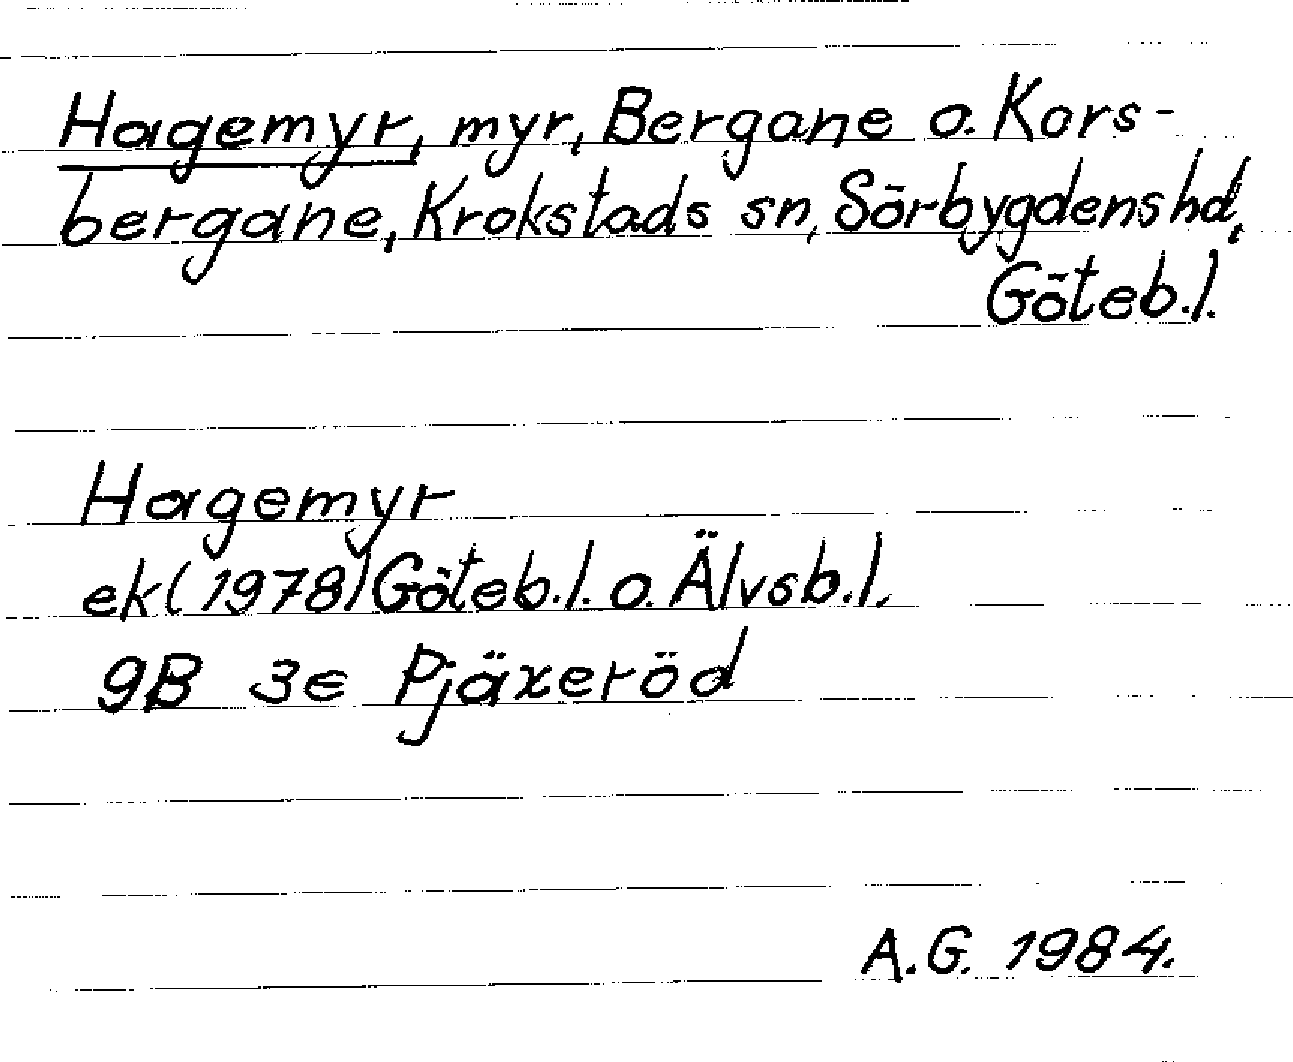 Hagemyr, myr, Bergane o. Kors-
bergane, Krokstads sn, Sörbygdens hd,
Göteb.l.
Hagemyr
ek (1978) Göteb.l. o. Älvsb.l.
9B 3e Pjäxeröd
A.G. 1984.